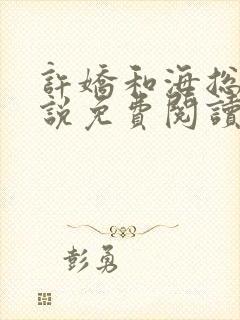 許嬌和海總
說免費閱讀
彭勇